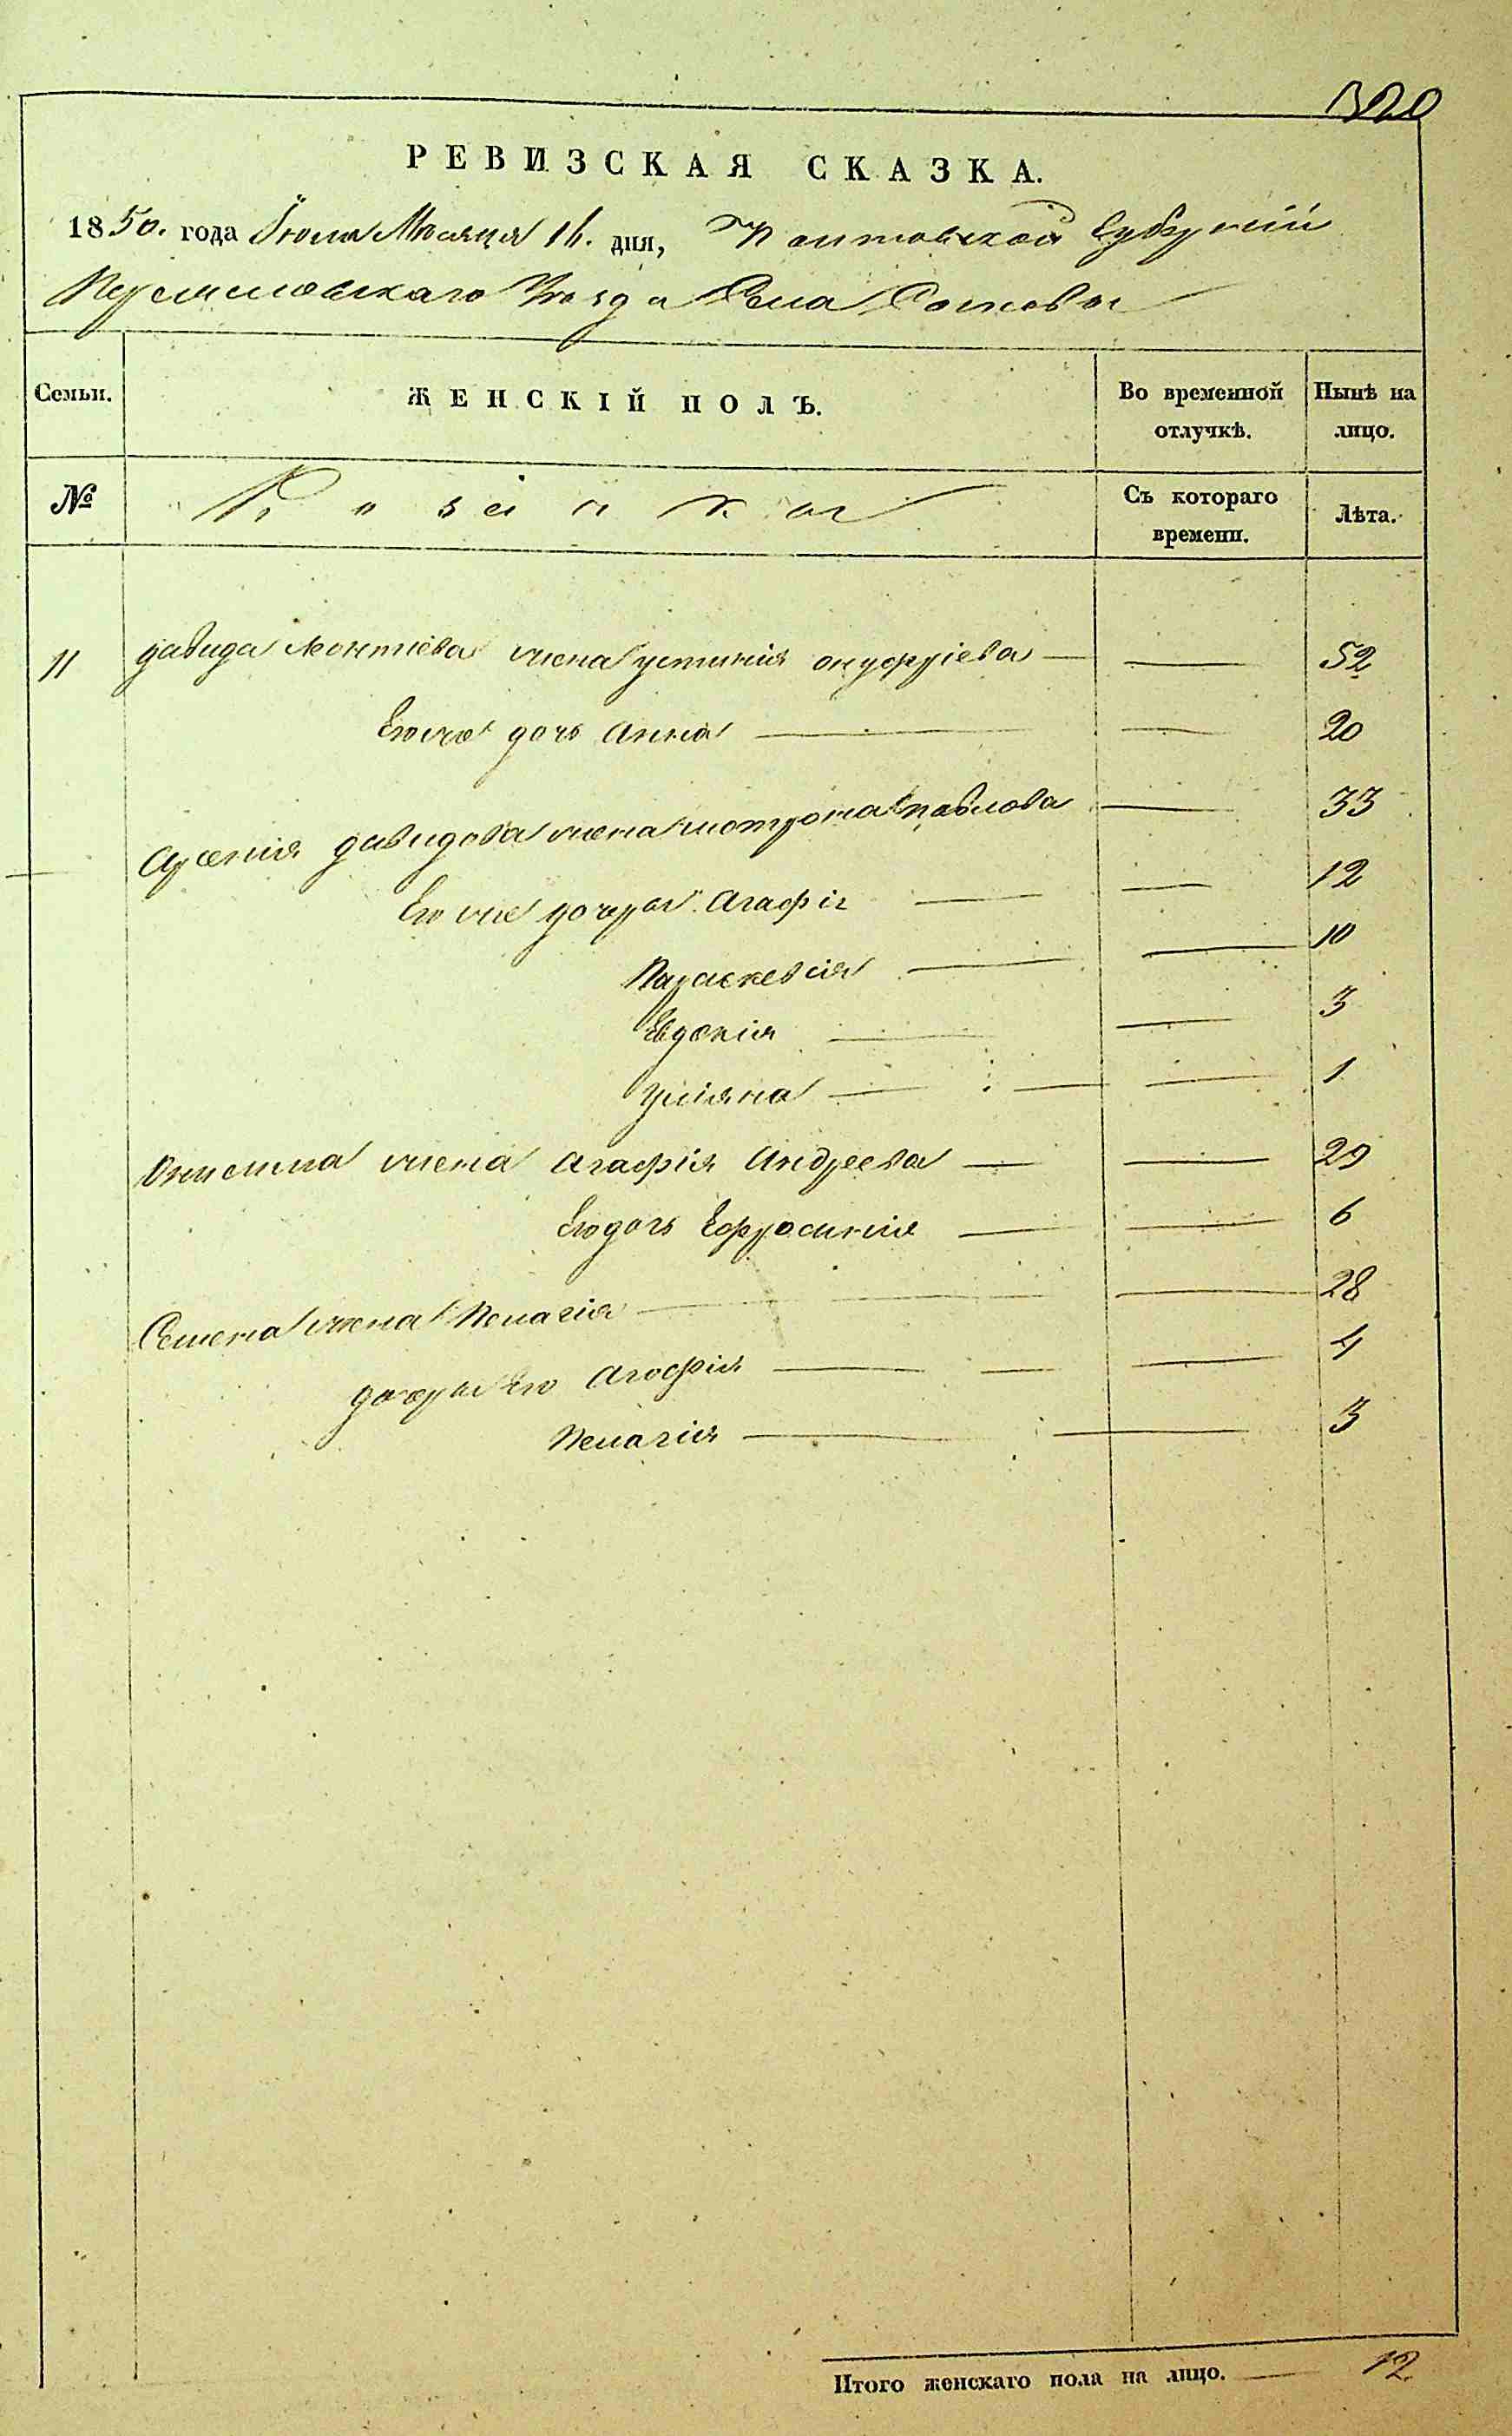 320
РЕВИЗСКАЯ СКАЗКА.
1850. года Іюля Мѣсяця 16. дня, Полтовской Губерніи
Переяславскаго Уѣзда Села Сосновы
Семьи. ЖЕНСКІЙ ПОЛЪ. Во временной отлучкѣ. Нынѣ на лицо.
№ Козаки Съ котораго времени. Лѣта.
11 давида Леонтіева жена устинія онуфріева — — 52
Его же дочь Анна — — 20
Арсенія давидова жена мотрона павлова — 33
Его же дочери Агафія — — 12
Параскевія — — 10
Евдокія — — 3
Уліяна — — — 1
Онисима жена Агафія Андреева — — 29
Его дочь Ефросинія — — 6
Семена жена Пелагія — — — 28
дочери Его Агофія — — — 4
Пелагія — — 3
Итого женскаго пола на лицо. — 12